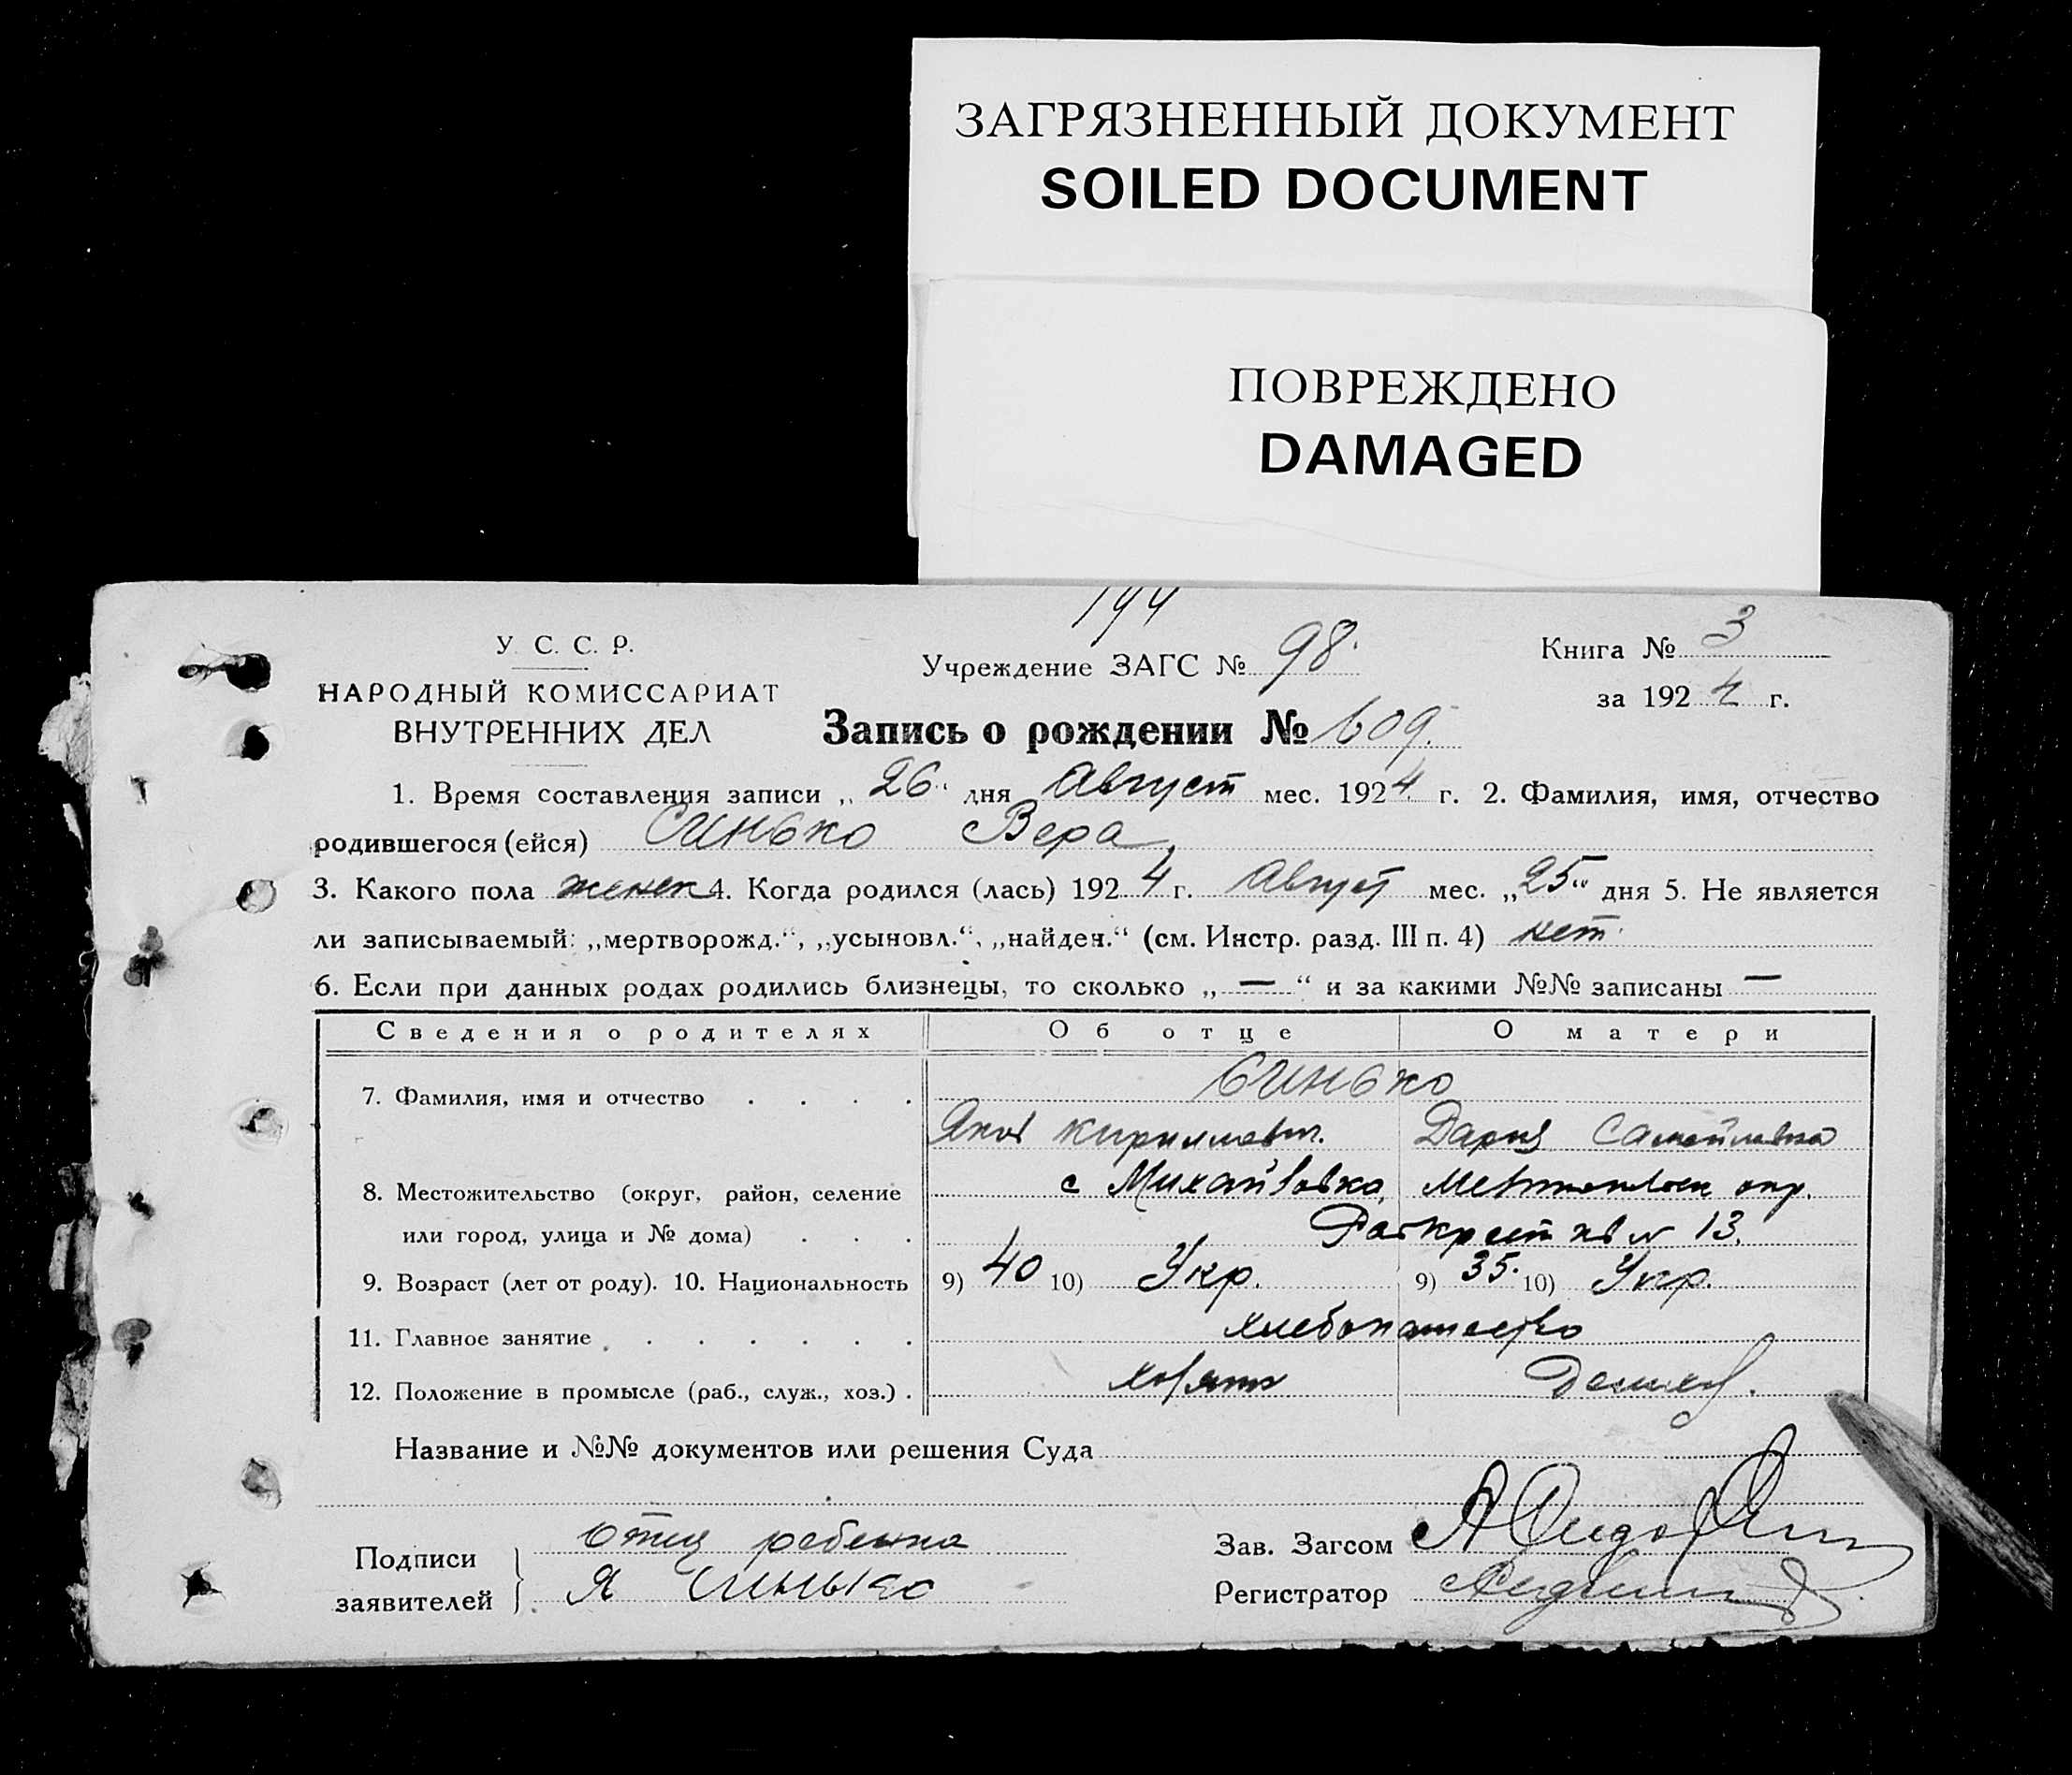 ЗАГРЯЗНЕННЫЙ ДОКУМЕНТ
SOILED DOCUMENT
ПОВРЕЖДЕНО
DAMAGED
194
У. С. С. Р.
Учреждение ЗАГС № 98.
Книга № 3
НАРОДНЫЙ КОМИССАРИАТ
за 1924 г.
ВНУТРЕННИХ ДЕЛ
Запись о рождении № 609.
1. Время составления записи „26“ дня Август мес. 1924 г. 2. Фамилия, имя, отчество
родившегося (ейся) Синько Вера
3. Какого пола женск 4. Когда родился (лась) 1924 г. Август мес. „25“ дня 5. Не является
ли записываемый: „мертворожд.“, „усыновл.“, „найден.“ (см. Инстр. разд. III п. 4) нет
6. Если при данных родах родились близнецы, то сколько „—“ и за какими №№ записаны —
Сведения о родителях Об отце О матери
Синько
7. Фамилия, имя и отчество . . . .
Яков Кирилович. Дария Самойловна
8. Местожительство (округ, район, селение с Михайловка, окр.
или город, улица и № дома) . . . № 13.
9. Возраст (лет от роду). 10. Национальность 9) 40 10) Укр. 9) 35. 10) Укр.
11. Главное занятие . . . . . . хлебопашество
12. Положение в промысле (раб., служ., хоз.) .
Название и №№ документов или решения Суда
Подписи заявителей
Отец ребенка
Я Синько
Зав. Загсом
Регистратор